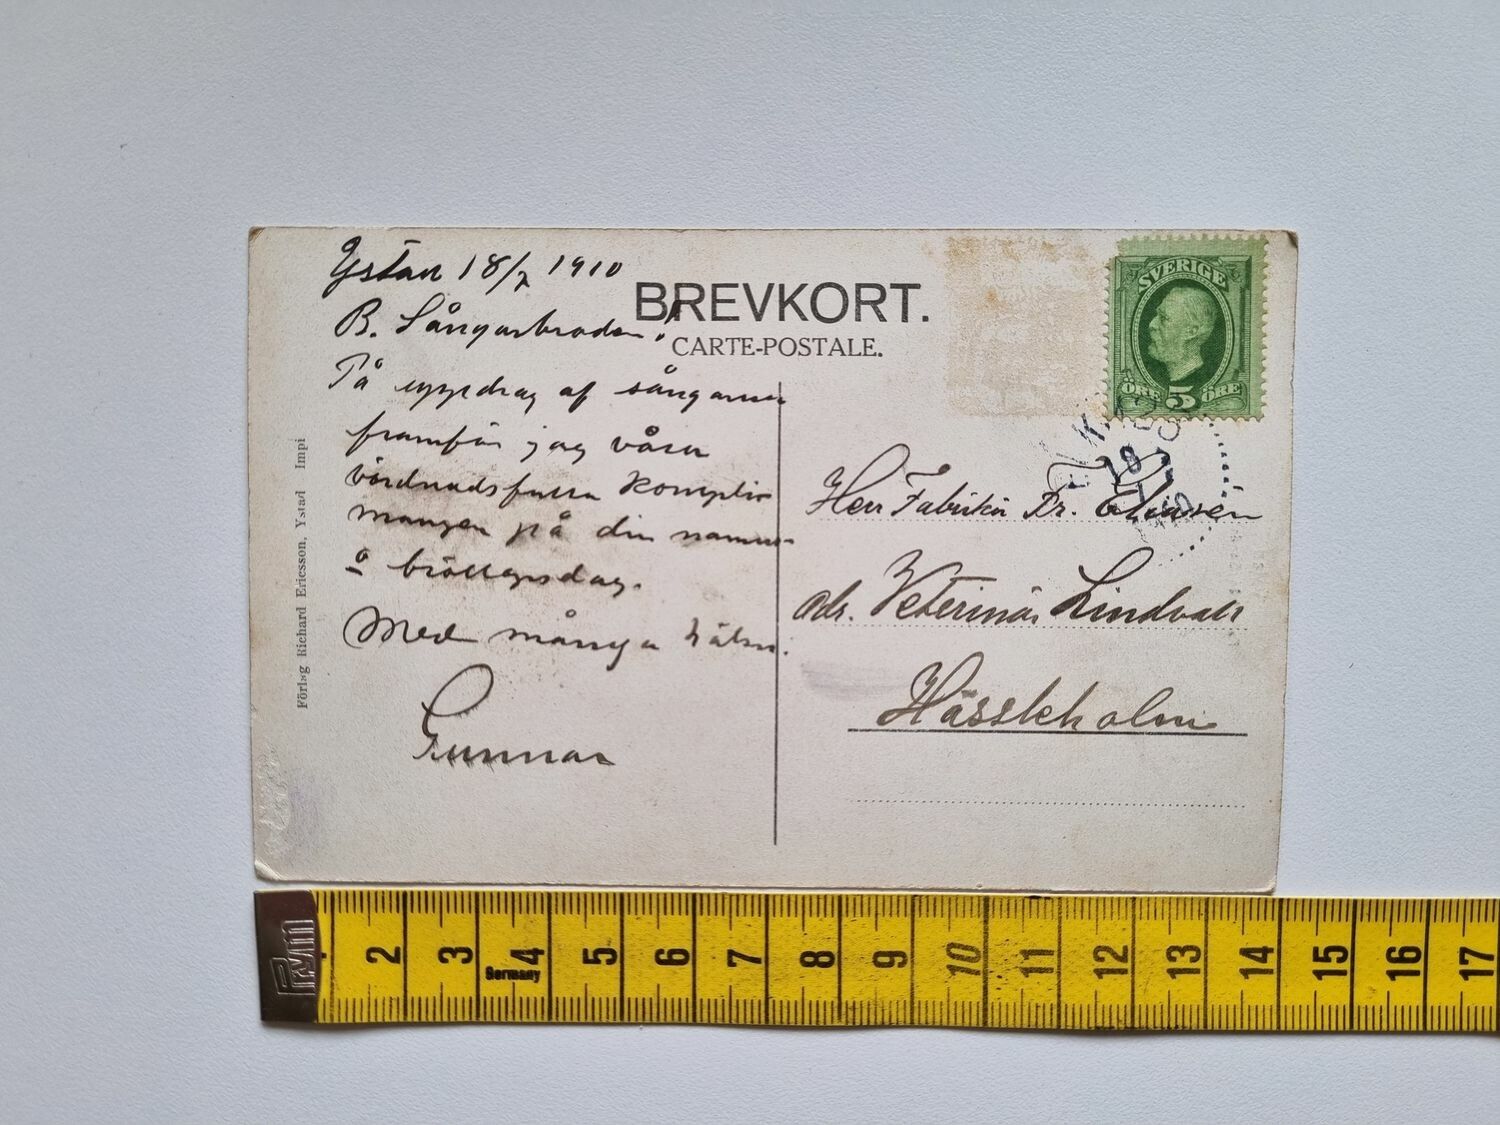 Ystad 18/7 1910
B. Sångarbroder!
På uppdrag af sångarne
framför jag våra
vördnadsfulla kompli-
manger på din namns-
o bröllopsdag.
Med många häls.
Gunnar
BREVKORT.
CARTE-POSTALE.
SVERIGE
ÖRE 5 ÖRE
18
Herr Fabrikör Fr.
adr. Veterinär Lindvall
Hässleholm
Förlag Richard Ericsson, Ystad Impi
Prym
2 3 4 5 6 7 8 9 10 11 12 13 14 15 16 17
Germany